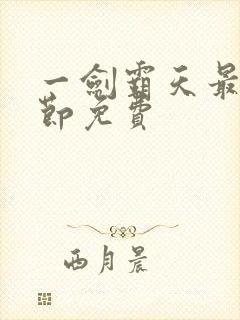 一劍霸天最
節免費
西月晨